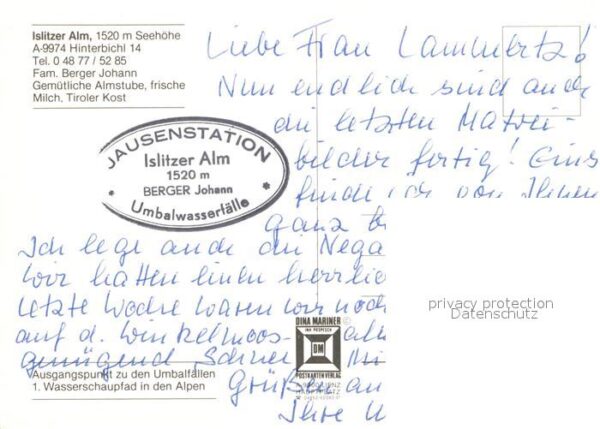 Islitzer Alm, 1520 m Seehöhe
A-9974 Hinterbichl 14
Tel. 0 48 77 / 52 85
Fam. Berger Johann
Gemütliche Almstube, frische
Milch, Tiroler Kost
JAUSENSTATION
Islitzer Alm
1520 m
BERGER Johann
Umbalwasserfälle
Liebe Frau Lammertz!
Nun endlich sind auch
die letzten Matrei-
bilder fertig! Eins
finde ich von Ihnen
ganz
Ich lege auch die Nega
Wir hatten einen herrlic
letzte Woche waren wir noch
auf d. Winkelmoos- alm
genügend Schnee. Mi
Grüßen an
Ihre U
DINA MARINER
DM
POSTKARTENVERLAG
Ausgangspunkt zu den Umbalfällen
1. Wasserschaupfad in den Alpen
privacy protection
Datenschutz